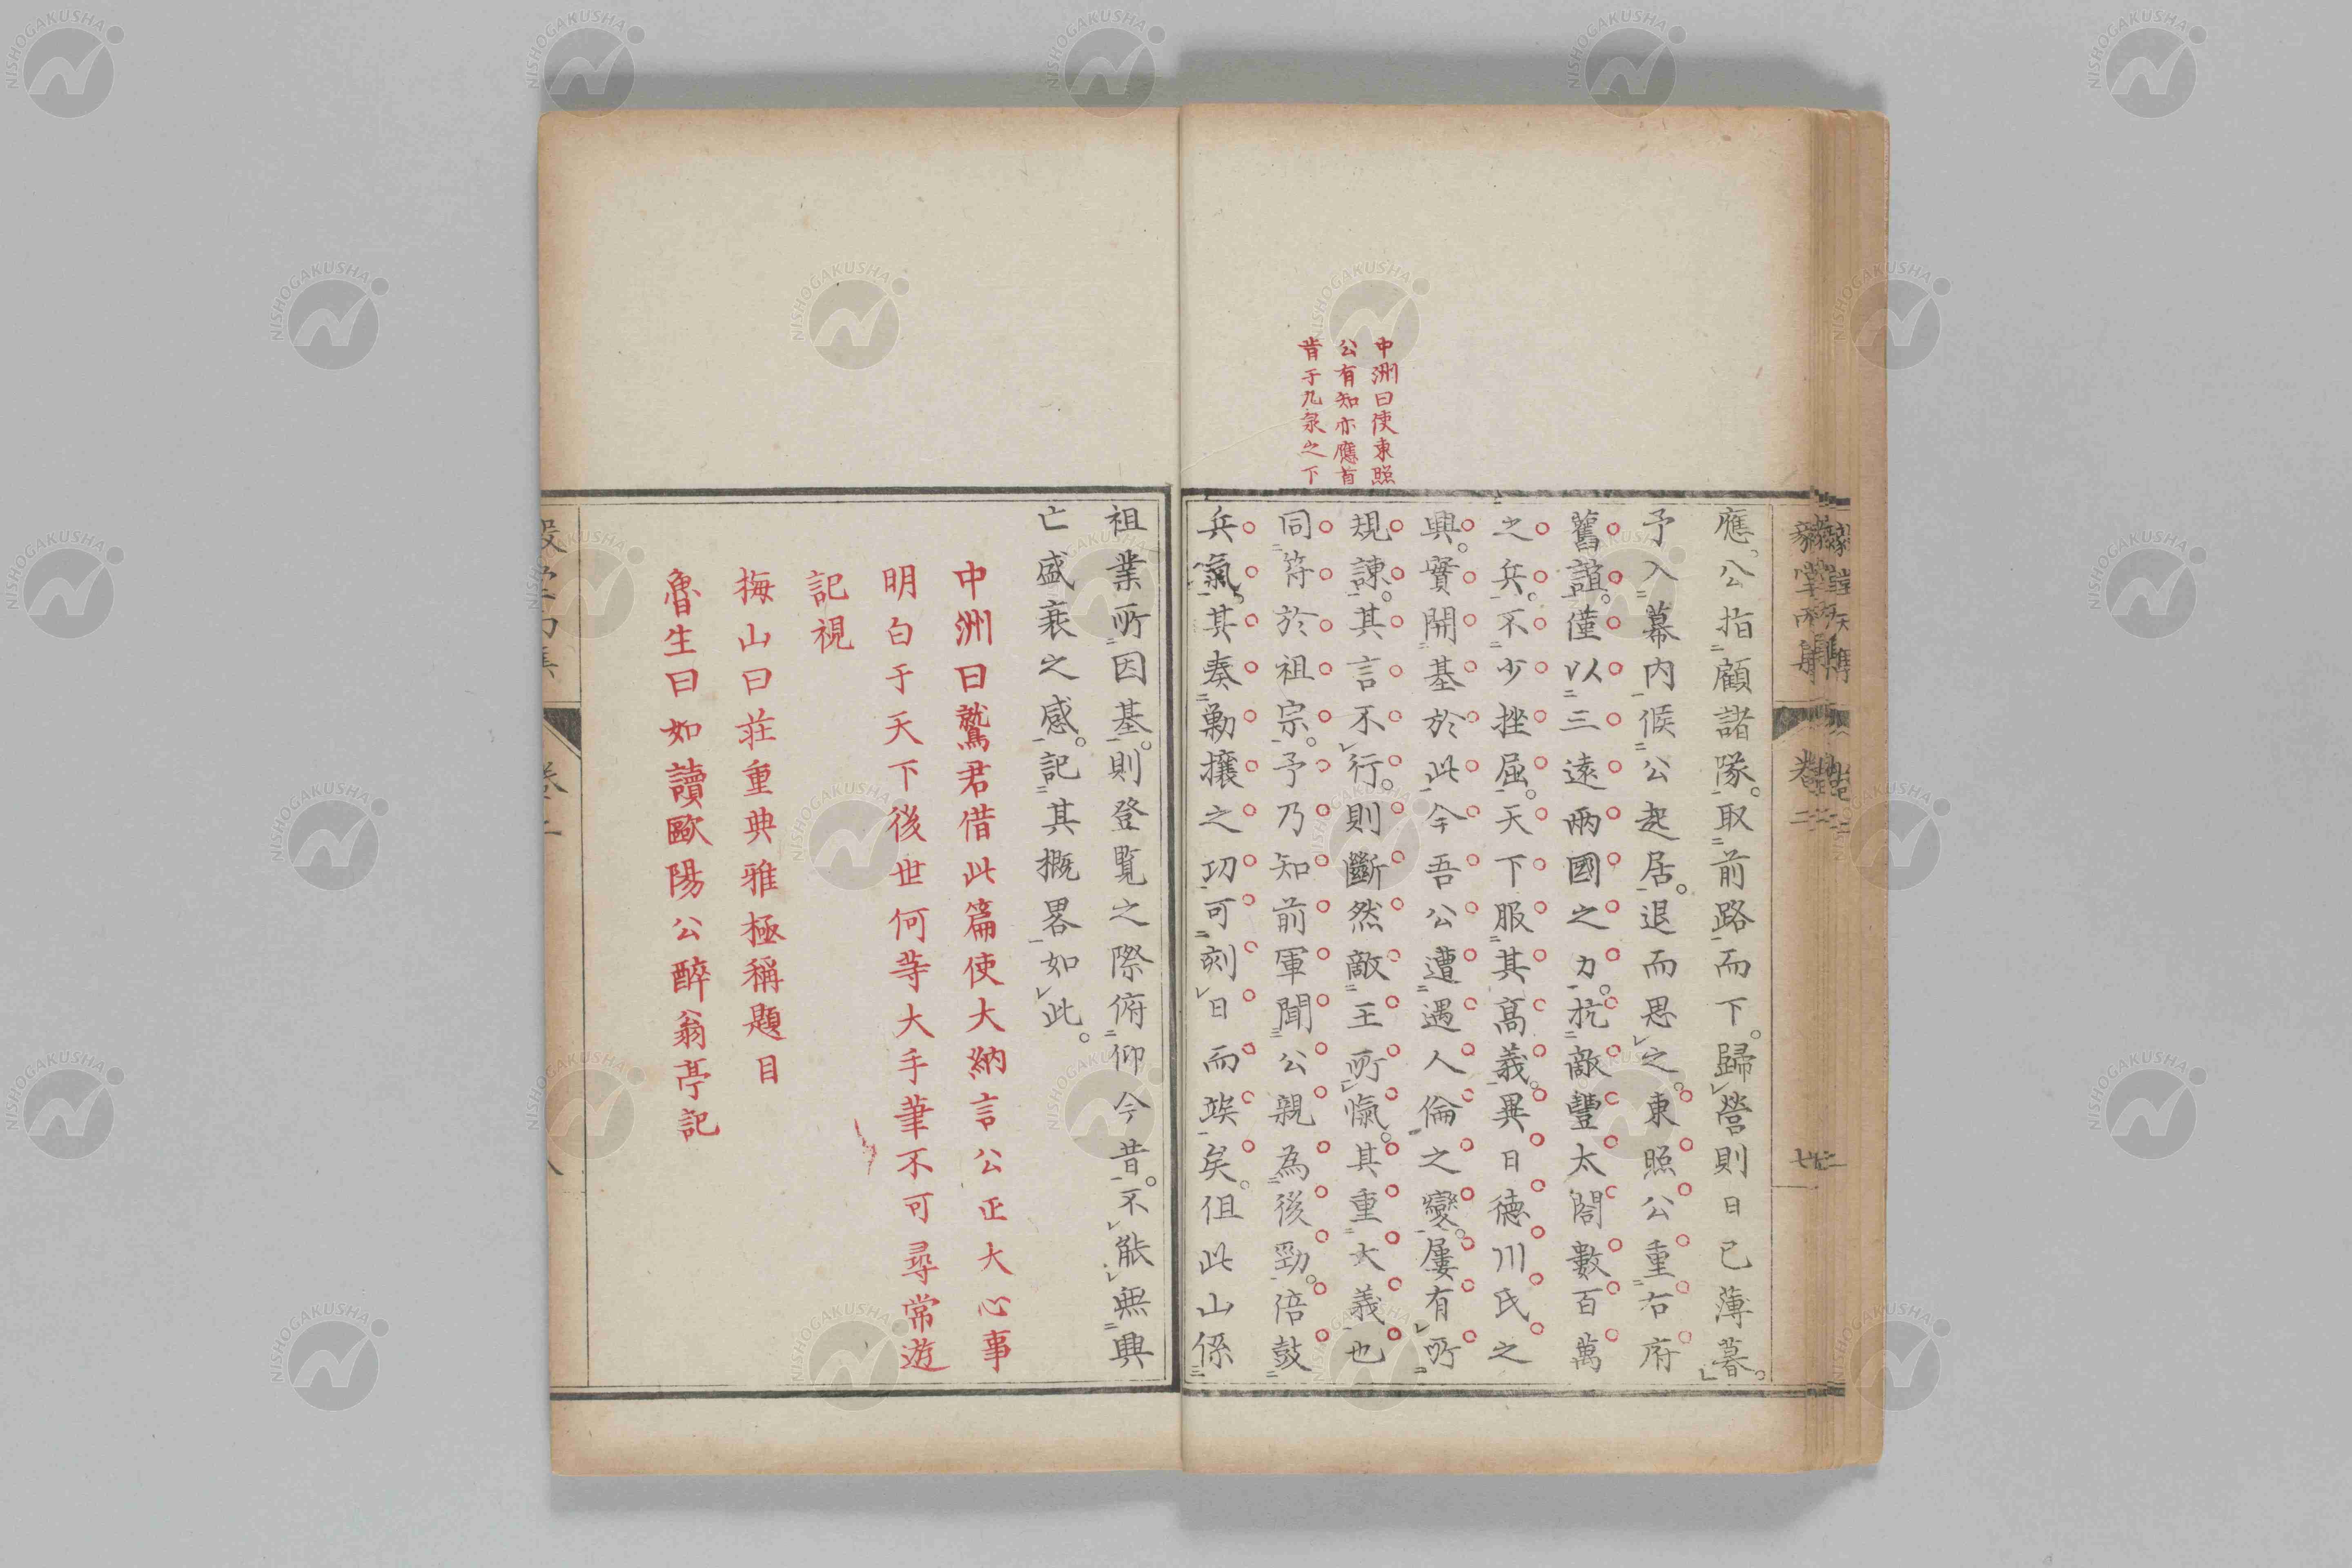 中洲曰使東照
公有知亦應首
肯于九泉之下
應公指顧諸隊取前路而下歸營則日已薄暮
予入幕内候公起居退而思之東照公重右府
舊誼僅以三遠兩國之力抗敵豐太閤數百萬
之兵不少挫屈天下服其高義異日德川氏之
興實開基於此今吾公遭遇人倫之變屢有所
規諫其言不行則斷然敵王所愾其重大義也
同符於祖宗予乃知前軍聞公親為後勁倍鼓
兵氣其奏勦攘之功可刻日而竢矣但此山係
祖業所因基則登覧之際俯仰今昔不能無興
亡盛衰之感記其概畧如此
中洲曰鷲君借此篇使大納言公正大心事
明白于天下後世何等大手筆不可尋常遊
記視
梅山曰莊重典雅極稱題目
魯生曰如讀歐陽公醉翁亭記
卷二
七
NISHOGAKUSHA